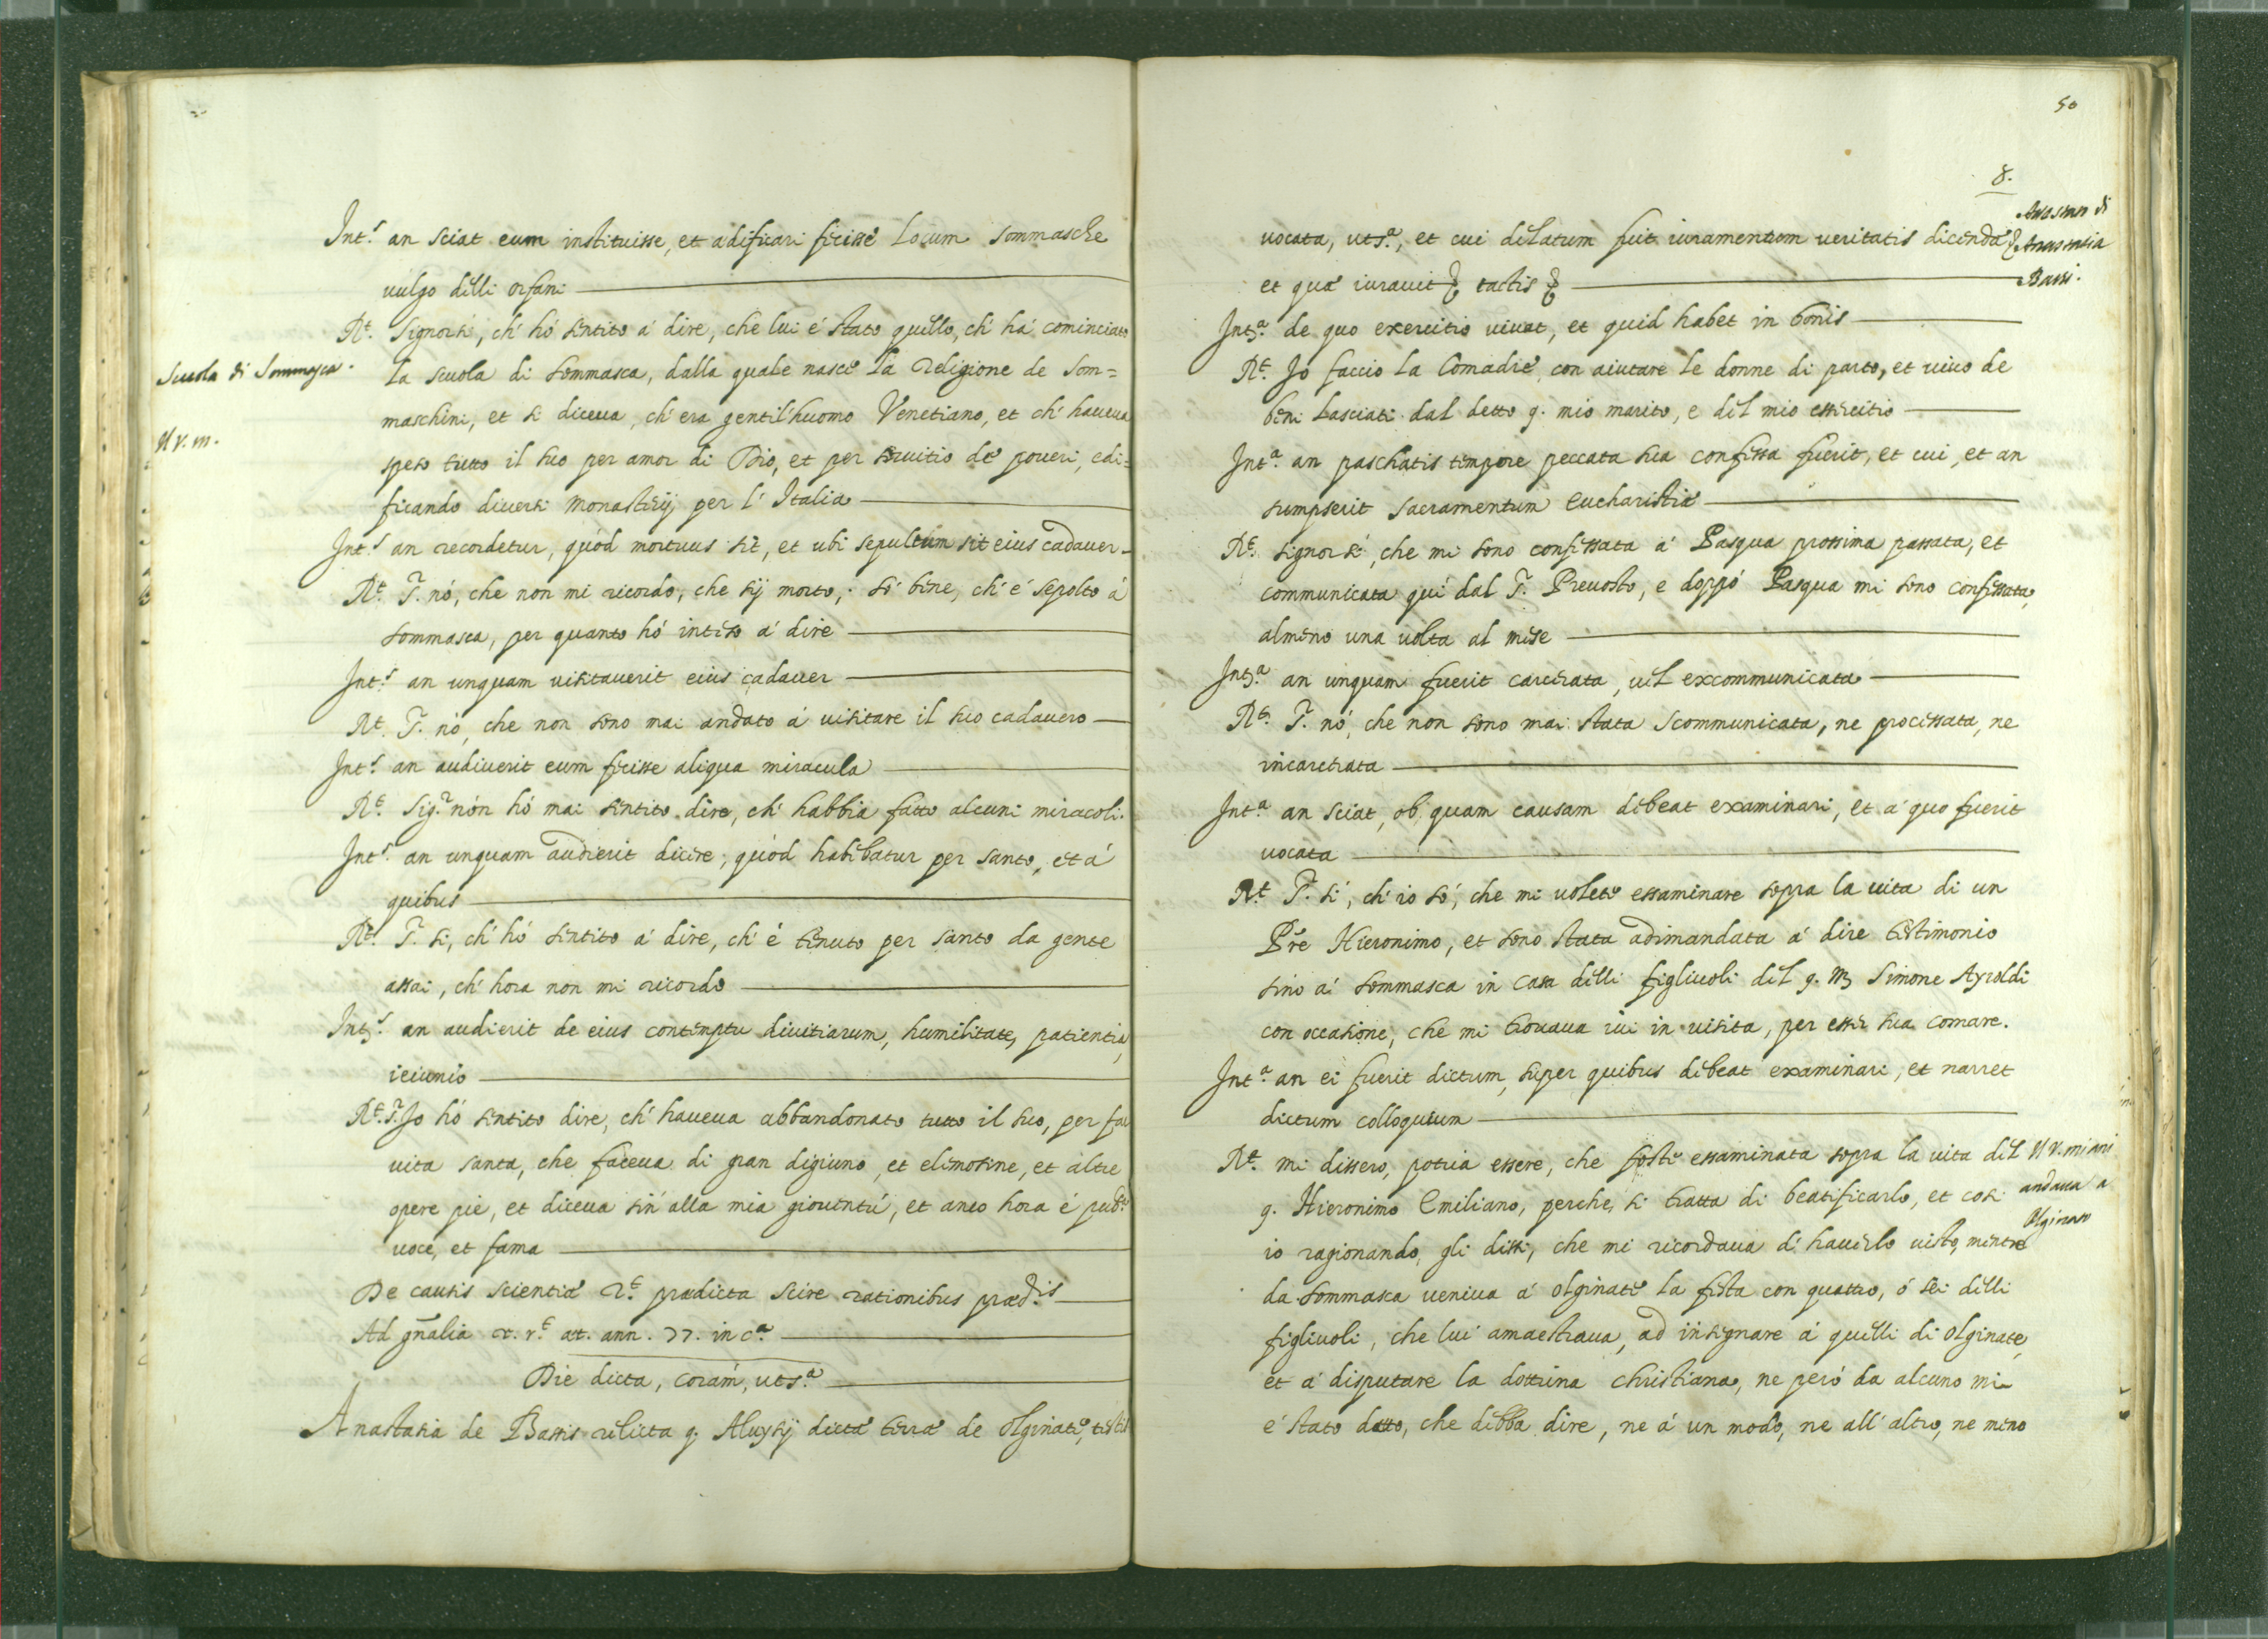 Int.s an sciat eum instituisse, et ædificari fecisse Locum Sommasche
vulgo delli orfani
R.t Signor si, ch' hó sentito á dire, che lui é stato quello, ch' há cominciato
Scuola di Sommasca.
la scuola di Sommasca, dalla quale nasce la Religione de Som=
maschini, et si diceva, ch' era gentil'huomo Venetiano, et ch' haveva
Il V. m.
speso tutto il suo per amor di Dio, et per servitio de poveri, edi=
ficando diversi monasterij per l' Italia
Int.s an recordetur, quód mortuus sit, et ubi sepultum sit eius cadaver
R.t S. nó, che non mi ricordo, che sij morto, só bene, ch' é sepolto á
Sommasca, per quanto hó inteso á dire
Int.s an unquam visitaverit eius cadaver
R.t S. nó, che non sono mai andato á visitare il suo cadavero
Int.s an audiverit eum fecisse aliqua miracula
R.t Sig.r nón hó mai sentito dire, ch' habbia fatto alcuni miracoli.
Int.s an unquam audierit dicere, quód habebatur per santo, et á
quibus
R.t S. si, ch' hó sentito á dire, ch' é tenuto per santo da gente
assai, ch' hora non mi ricordo
Int.s an audierit de eius contemptu divitiarum, humilitate, patientia,
ieiunio
R.t S. Io hó sentito dire, ch' haveva abbandonato tutto il suo, per far
vita santa, che faceva di gran digiuno, et elimosine, et altre
opere pie, et diceva sin' alla mia gioventú, et anco hora é pub.a
voce, et fama
De causis scientiæ R.t prædicta scire rationibus præd.is
Ad gñalia &. r.t æt. ann. 77. in c.a
Die dicta, corám, uts.a
Anastasia de Bassis relicta q. Aluysij dictæ terræ de Olginate, testis
50
8.
Anastasia
Bassi.
vocata, uts.a, et cui delatum fuit iuramentum veritatis dicendæ &
et quæ iuravit & tactis &
Int.a de quo exercitio vivat, et quid habet in bonis
R.t Io faccio la Comadre, con aiutare le donne di parto, et vivo de
beni lasciati dal detto q. mio marito, e del mio essercitio
Int.a an paschatis tempore peccata sua confessa fuerit, et cui, et an
sumpserit sacramentum Eucharistiæ
R.t Signor si, che mi sono confessata á Pasqua prossima passata, et
communicata quí dal S. Prevosto, e doppó Pasqua mi sono confessata,
almeno una volta al mese
Int.a an unquam fuerit carcerata, vel excommunicata
R.t S. nó, che non sono mai stata scommunicata, ne processata, ne
incarcerata
Int.a an sciat, ob quam causam debeat examinari, et á quo fuerit
vocata
R.t S. si, ch' io só, che mi volete essaminare sopra la vita di un
Pre Hieronimo, et sono stata adimandata á dire testimonio
sino á Sommasca in casa delli figliuoli del q. m Simone Ayroldi
con occasione, che mi trovava ivi in visita, per esser sua comare.
Int.a an ei fuerit dictum, super quibus debeat examinari, et narret
dictum colloquium
R.t mi dissero, potria essere, che foste essaminata sopra la vita del
Il V. miani
andava a
Olginate
q. Hieronimo Emiliano, perche, si tratta di beatificarlo, et cosi
io ragionando, gli dissi, che mi ricordava d' haverlo visto, mentre
da Sommasca veniva á Olginate la festa con quattro, ó sei delli
figliuoli, che lui amaestrava, ad insegnare á quelli di Olginate,
et á disputare la dottrina christiana, ne peró da alcuno mi
é stato detto, che debba dire, ne á un modo, ne all' altro, ne meno